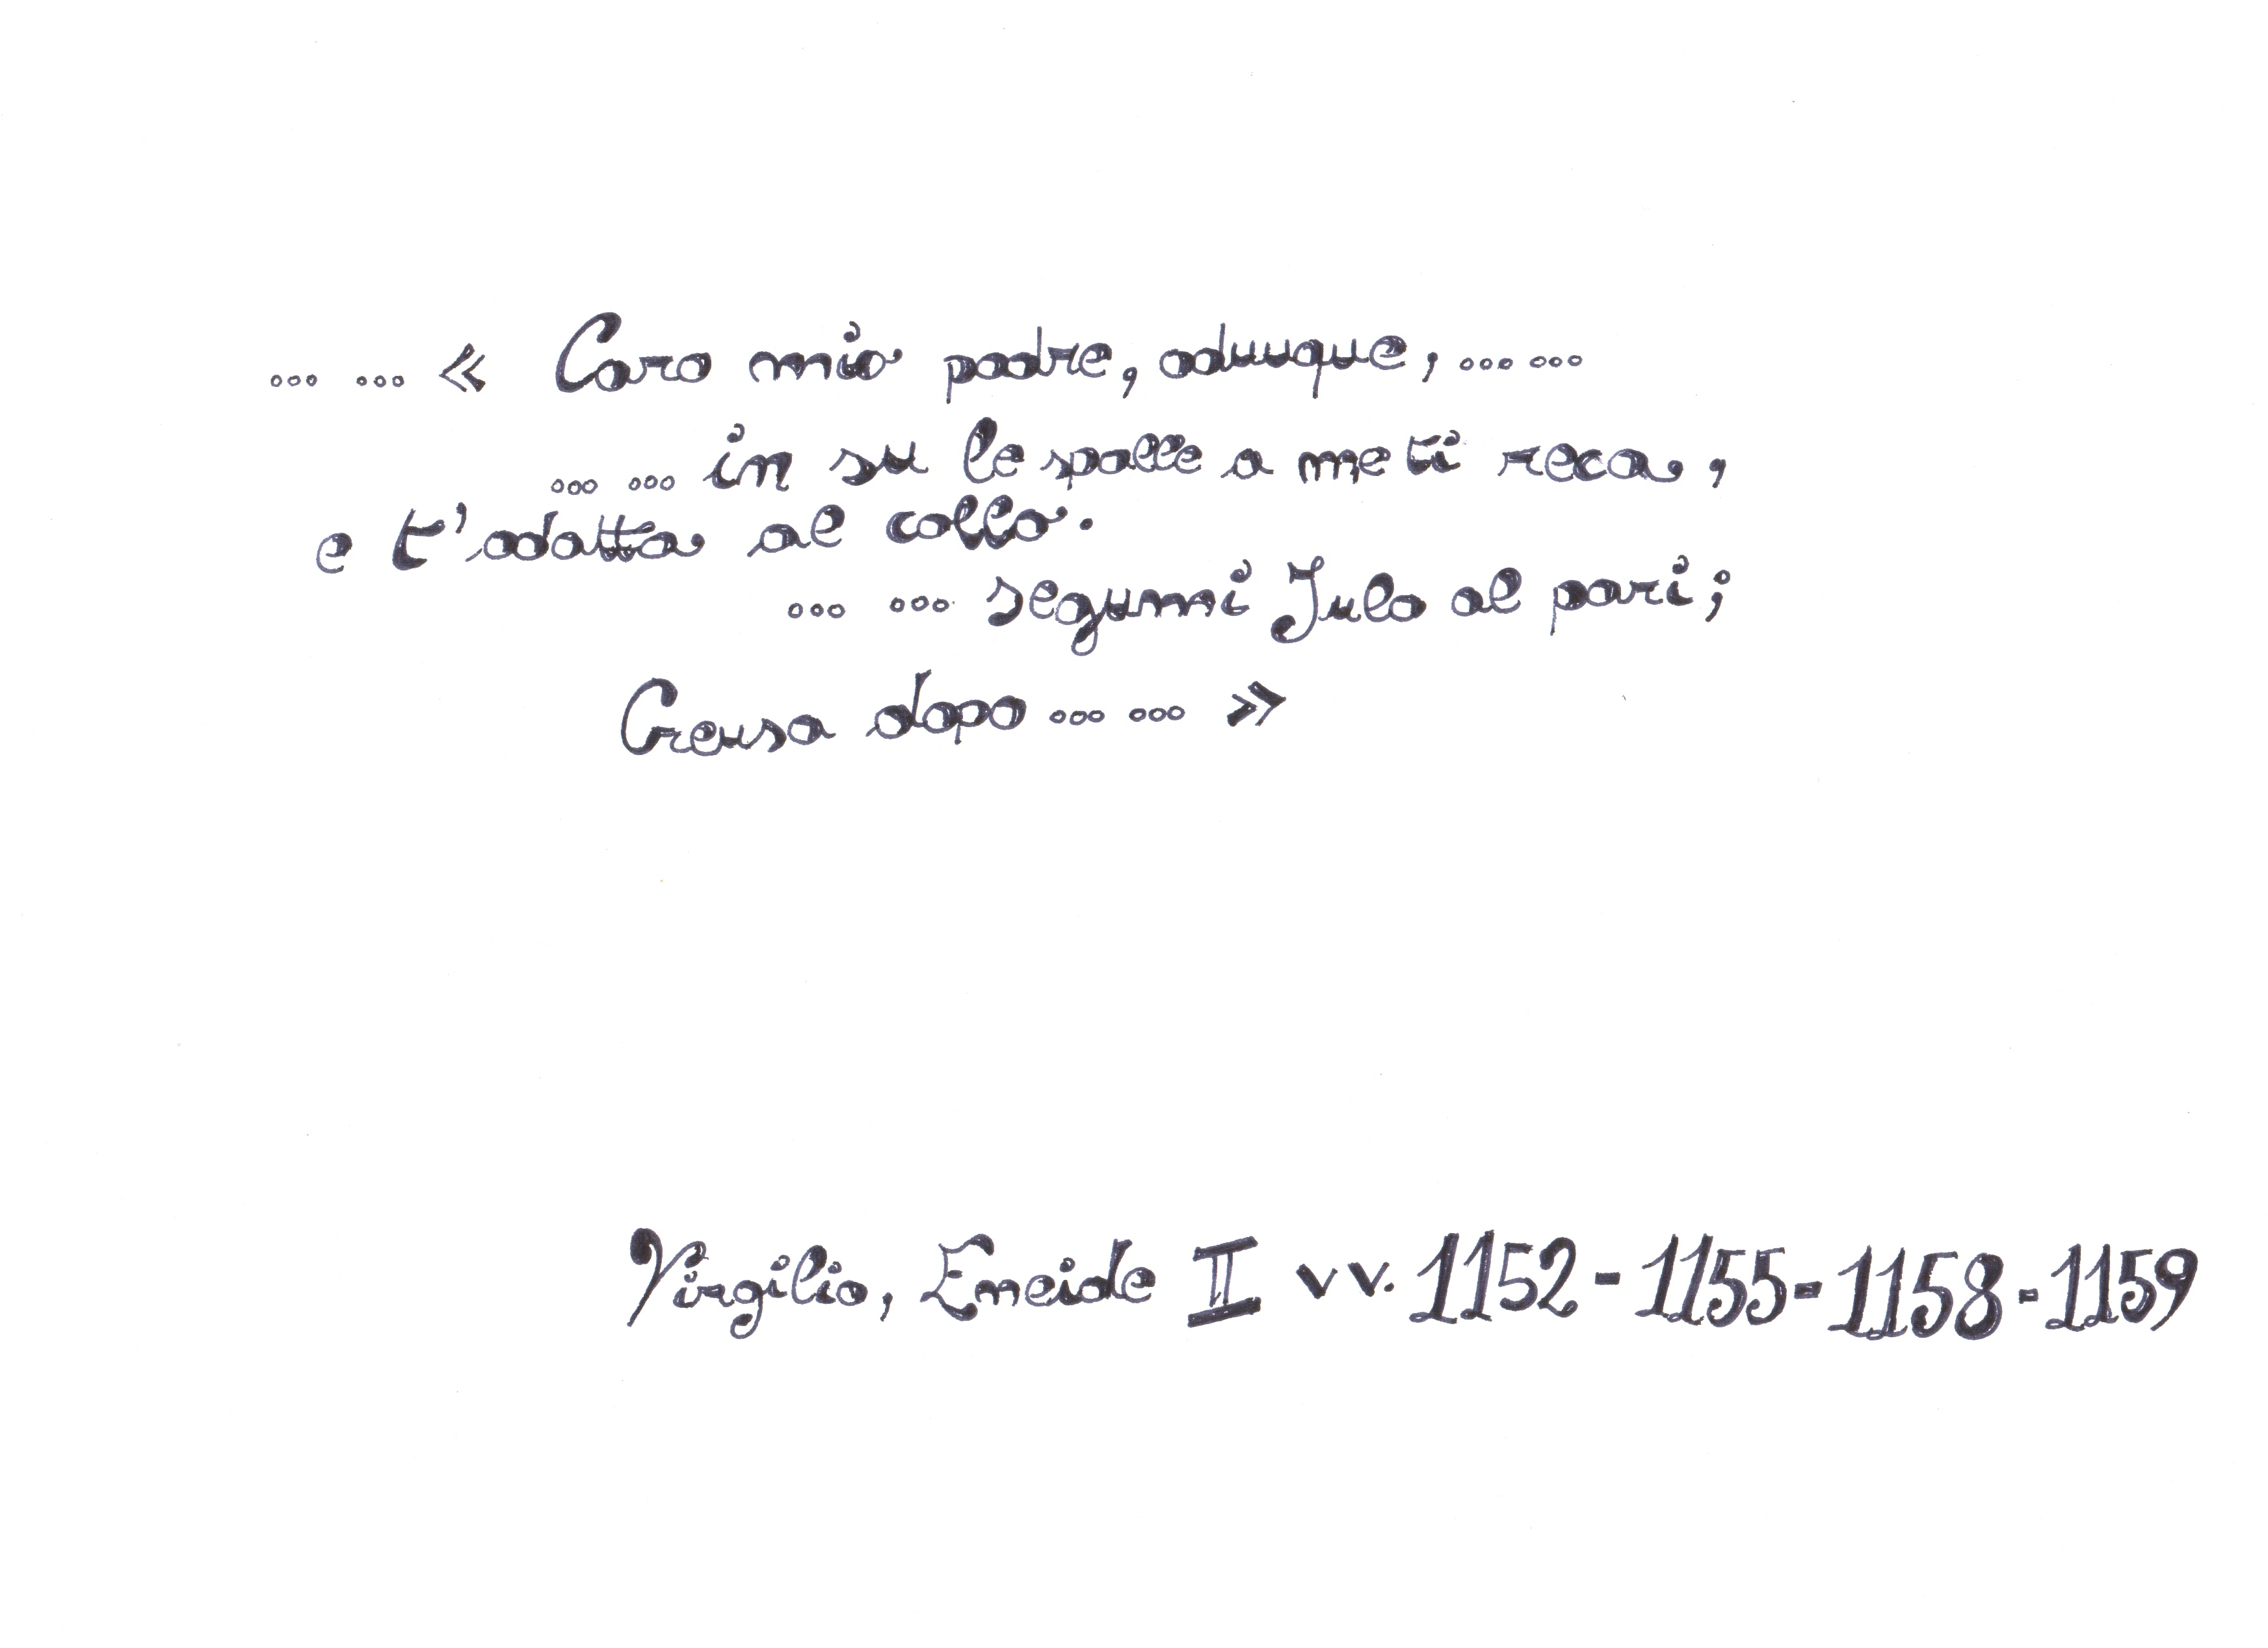 ... ... « Caro mio padre, adunque, ... ...
... ... in su le spalle a me ti reca,
e t'adatta al collo.
... ... segumi Julo al pari;
Creusa dopo ... ... »
Virgilio, Eneide II vv. 1152-1155-1158-1159